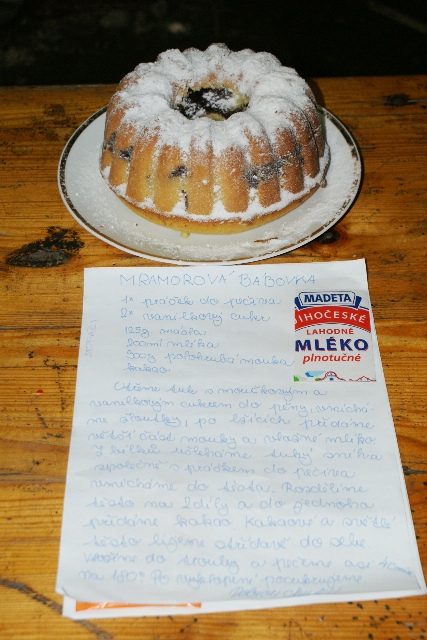 MRAMOROVÁ BÁBOVKA
1x prášek do pečiva
2x vanilkový cukr
125g másla
200ml mléka
500g polohrubá mouka
kakao
MADETA
JIHOČESKÉ
LAHODNÉ
MLÉKO
plnotučné
Utřeme tuk s moučkovým a
vanilkovým cukrem do pěny, vmíchá-
me žloutky, po lžících přidáme
větší část mouky a vlažné mléko.
Z bílků ušleháme tuhý sníh a
společně s práškem do pečiva
vmícháme do těsta. Rozdělíme
těsto na 2 díly a do jednoho
přidáme kakao. Kakaové a světlé
těsto lijeme střídavě do
vložíme do trouby a pečeme asi
na 180° Po vyklopení pocukrujeme